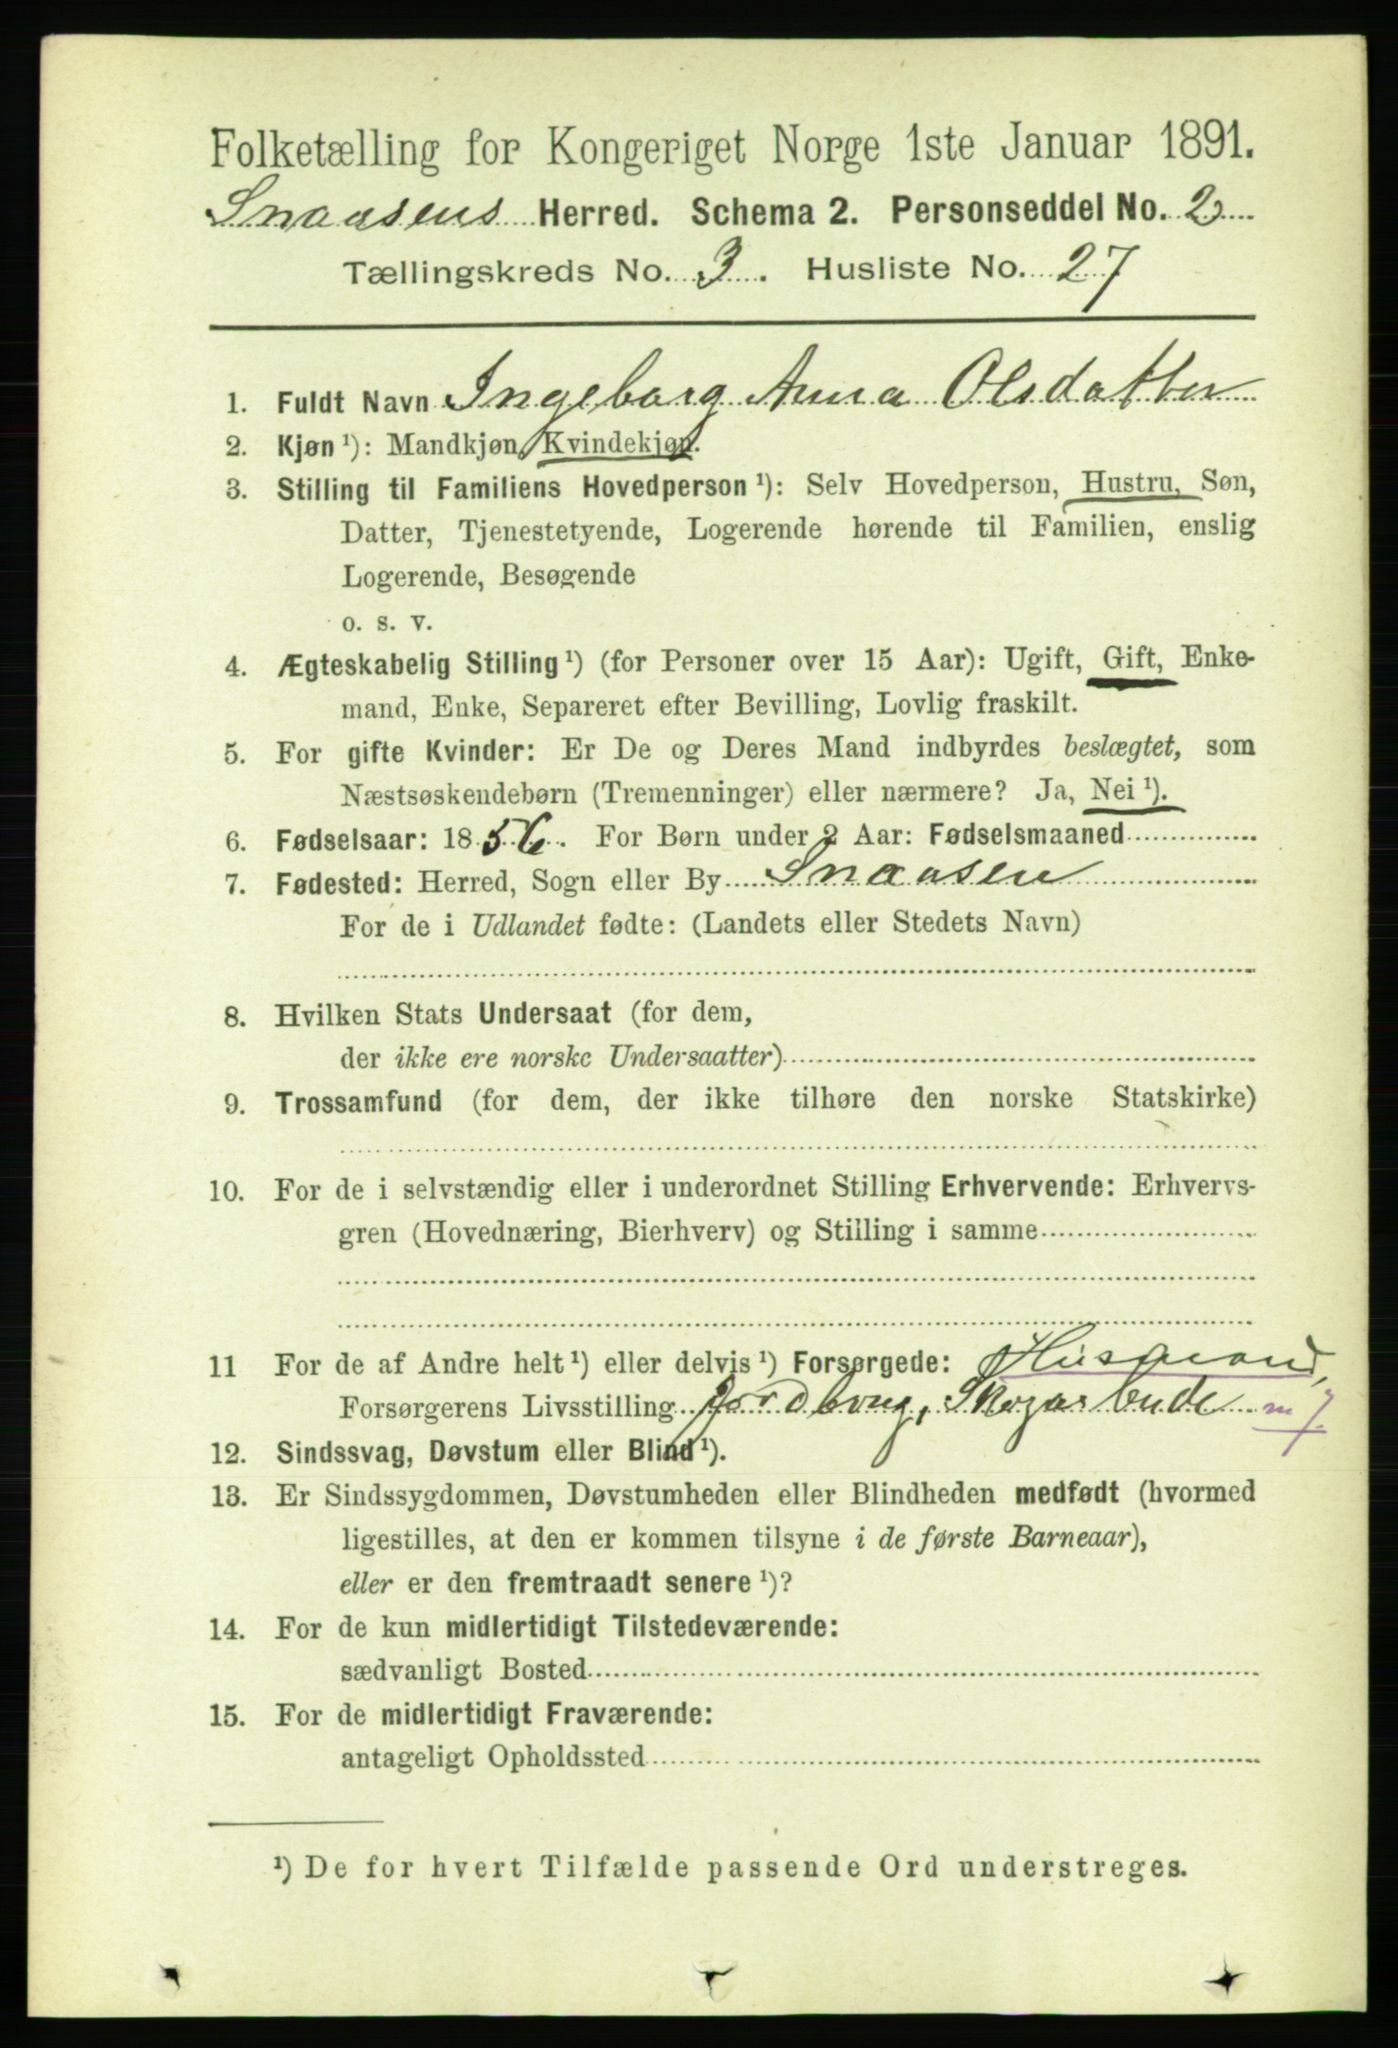 Folketælling for Kongeriget Norge 1ste Januar 1891.
Snaasens Herred. Schema 2. Personseddel No. 2
Tællingskreds No. 3. Husliste No. 27
1. Fuldt Navn Ingeborg Anna Olsdatter
2. Kjøn ¹): Mandkjøn, Kvindekjøn.
3. Stilling til Familiens Hovedperson ¹): Selv Hovedperson, Hustru, Søn,
Datter, Tjenestetyende, Logerende hørende til Familien, enslig
Logerende, Besøgende
o. s. v.
4. Ægteskabelig Stilling ¹) (for Personer over 15 Aar): Ugift, Gift, Enke-
mand, Enke, Separeret efter Bevilling, Lovlig fraskilt.
5. For gifte Kvinder: Er De og Deres Mand indbyrdes beslægtet, som
Næstsøskendebørn (Tremenninger) eller nærmere? Ja, Nei ¹).
6. Fødselsaar: 1856. For Børn under 2 Aar: Fødselsmaaned
7. Fødested: Herred, Sogn eller By Snaasen
For de i Udlandet fødte: (Landets eller Stedets Navn)
8. Hvilken Stats Undersaat (for dem,
der ikke ere norske Undersaatter)
9. Trossamfund (for dem, der ikke tilhøre den norske Statskirke)
10. For de i selvstændig eller i underordnet Stilling Erhvervende: Erhvervs-
gren (Hovednæring, Bierhverv) og Stilling i samme
11 For de af Andre helt ¹) eller delvis ¹) Forsørgede: Husmand,
Forsørgerens Livsstilling Jordbrug, Skogarbeide m J.
12. Sindssvag, Døvstum eller Blind ¹).
13. Er Sindssygdommen, Døvstumheden eller Blindheden medfødt (hvormed
ligestilles, at den er kommen tilsyne i de første Barneaar),
eller er den fremtraadt senere ¹)?
14. For de kun midlertidigt Tilstedeværende:
sædvanligt Bosted
15. For de midlertidigt Fraværende:
antageligt Opholdssted
¹) De for hvert Tilfælde passende Ord understreges.